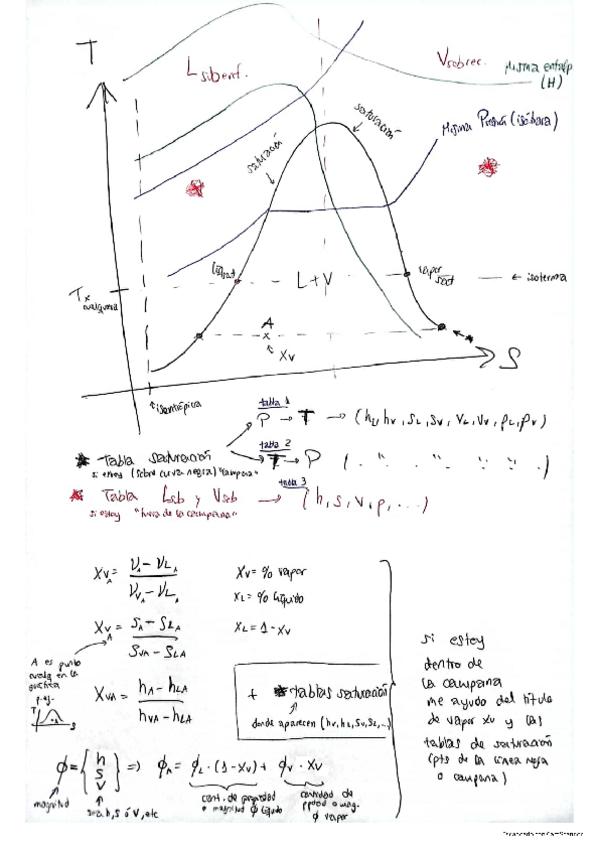 T
L subenf.
Vsobrec.
Misma entalp
(H)
saturación
saturación
Misma Presión (isóbara)
Liq sat
L+V
vapor sat
← isoterma
Tx cualquiera
A
Xv
S
↑ isentrópica
tabla 1
P → T → (hL, hv, sL, sv, vL, vv, ρL, ρv)
* Tabla saturación
si estoy (sobre curva negra) "campana"
tabla 2
T → P ( . " . " . " : " : .)
tabla 3
* Tabla Lsub y Vsob → (h, s, v, ρ, ...)
si estoy "fuera de la campana"
XvA = vA - vLA / vvA - vLA
Xv = % vapor
XL = % líquido
XvA = sA - sLA / svA - sLA
XL = 1 - Xv
A es punto
cualq en la
p.ej.
T
S
XvA = hA - hLA / hvA - hLA
+ * tablas saturación
donde aparecen (hv, hL, sv, sL, ..)
si estoy
dentro de
la campana
me ayudo del título
de vapor xv y las
tablas de saturación
(pts de la línea negra
o campana)
ϕ = { h s v } => ϕA = ϕL · (1-Xv) + ϕv · Xv
magnitud
sea h, s ó v, etc
cant. de propiedad
o magnitud ϕ líquido
cantidad de
ppdad o mag.
ϕ vapor
Escaneado con CamScanner